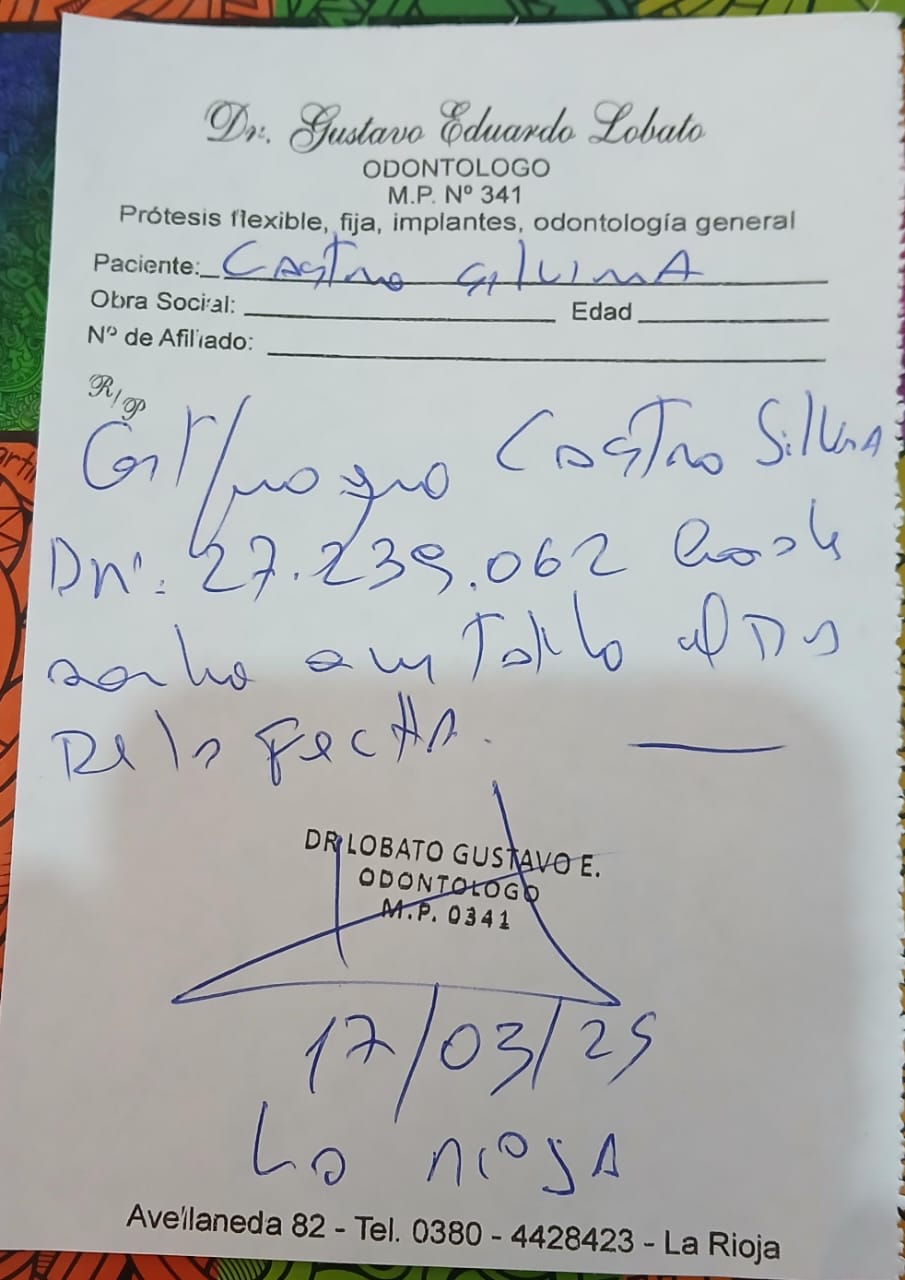 Dr. Gustavo Eduardo Lobato
ODONTOLOGO
M.P. Nº 341
Prótesis flexible, fija, implantes, odontología general
Paciente: Castro Silvina
Obra Social: Edad
Nº de Afiliado:
R/P
Castro Silvina
Dni: 27.239.062
al Dia
De la Fecha.
DR LOBATO GUSTAVO E.
ODONTOLOGO
M.P. 0341
17/03/25
La Rioja
Avellaneda 82 - Tel. 0380 - 4428423 - La Rioja